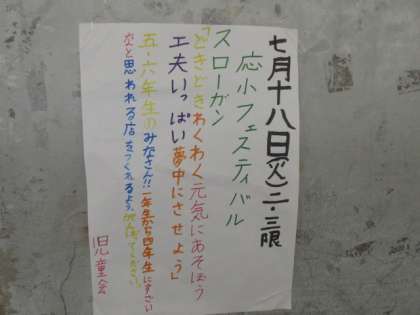 七月十八日(火)二・三限
応小フェスティバル
スローガン
「どきどきわくわく元気にあそぼう
工夫いっぱい夢中にさせよう」
五・六年生のみなさん!!一年生から四年生にすごい
なと思われる店をつくれるようがんばってください。
児童会